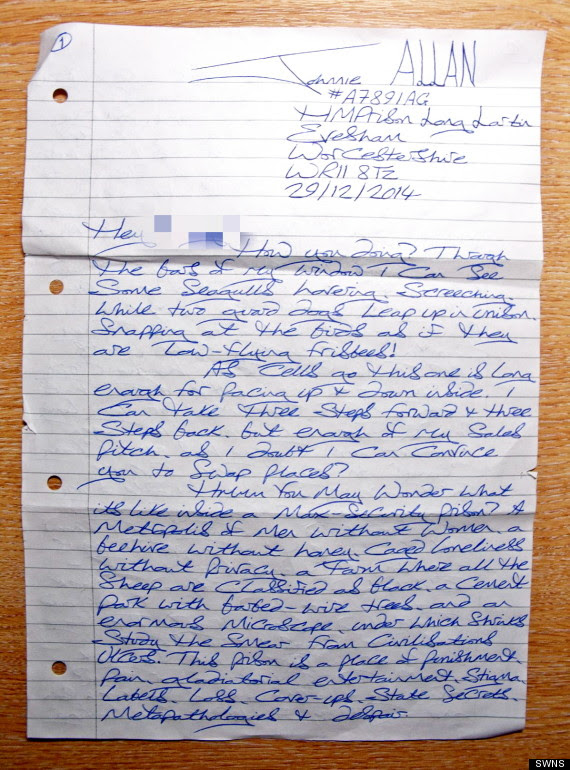 1
Johnnie ALLAN
#A7891AG
HMPrison Long Lartin
Evesham
Worcestershire
WR11 8TZ
29/12/2014
Hey
How you doing? Through
the bars of my window I can see
some seagulls hovering. Screeching.
While two guard dogs leap up in unison.
Snapping at the birds as if they
are low-flying frisbees!
As cells go this one is long
enough for pacing up & down inside. I
can take three steps forward & three
steps back. but enough of my sales
pitch. as I doubt I can convince
you to swap places?
You may wonder what
it's like inside a Max-Security prison? A
Metropolis of men without women. a
beehive without honey. Caged loneliness
without privacy. a farm where all the
sheep are classified as black. a cement
park with barbed-wire trees. and an
enormous microscope. under which shrinks
study the smear from civilisations
ulcers. This prison is a place of punishment.
pain. gladiatorial entertainment. Stigma.
Labels. Loss. Cover-ups. State Secrets.
Metapathologies & despair.
SWNS